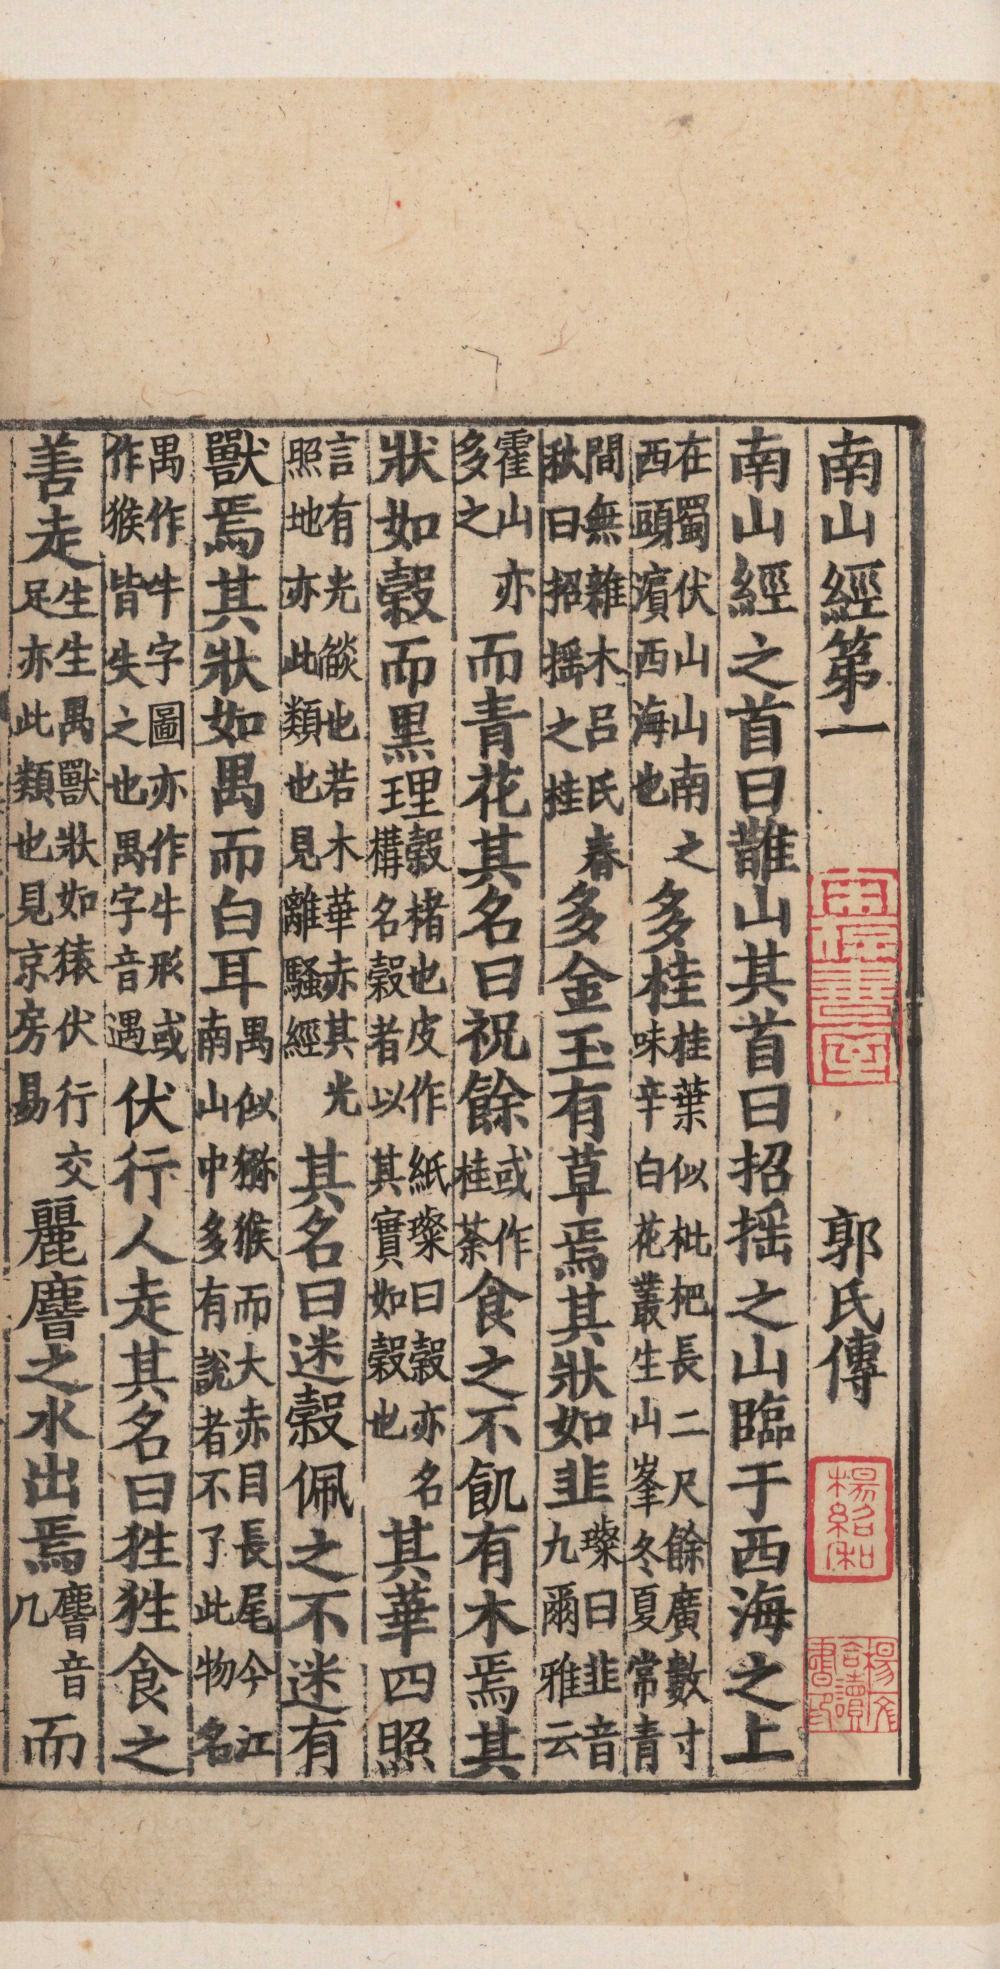 南山經第一 郭氏傳
南山經之首曰䧿山其首曰招揺之山臨于西海之上
在蜀伏山山南之西頭濵西海也多桂桂葉似枇杷長二尺餘廣數寸味辛白花叢生山峯冬夏常青
間無雜木吕氏春秋曰招揺之桂多金玉有草焉其狀如韭璨曰韭音九爾雅云
霍山亦多之而青花其名曰祝餘或作桂荼食之不飢有木焉其
狀如榖而黒理榖楮也皮作紙璨曰榖亦名構名榖者以其實如榖也其華四照
言有光燄也若木華赤其光照地亦此類也見離騷經其名曰迷榖佩之不迷有
獸焉其狀如禺而白耳禺似獼猴而大赤目長尾今江南山中多有說者不了此物名
禺作牛字圖亦作牛形或作猴皆失之也禺字音遇伏行人走其名曰狌狌食之
善走生生禺獸狀如猿伏行交足亦此類也見京房易麗𪊨之水出焉𪊨音几而
楊紹和
楊
合讀
書